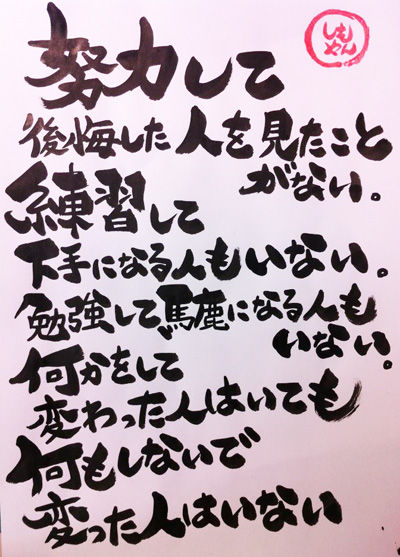 しも
やん
努力して
後悔した人を見たこと
がない。
練習して
下手になる人もいない。
勉強して馬鹿になる人も
いない。
何かをして
変わった人はいても
何もしないで
変った人はいない